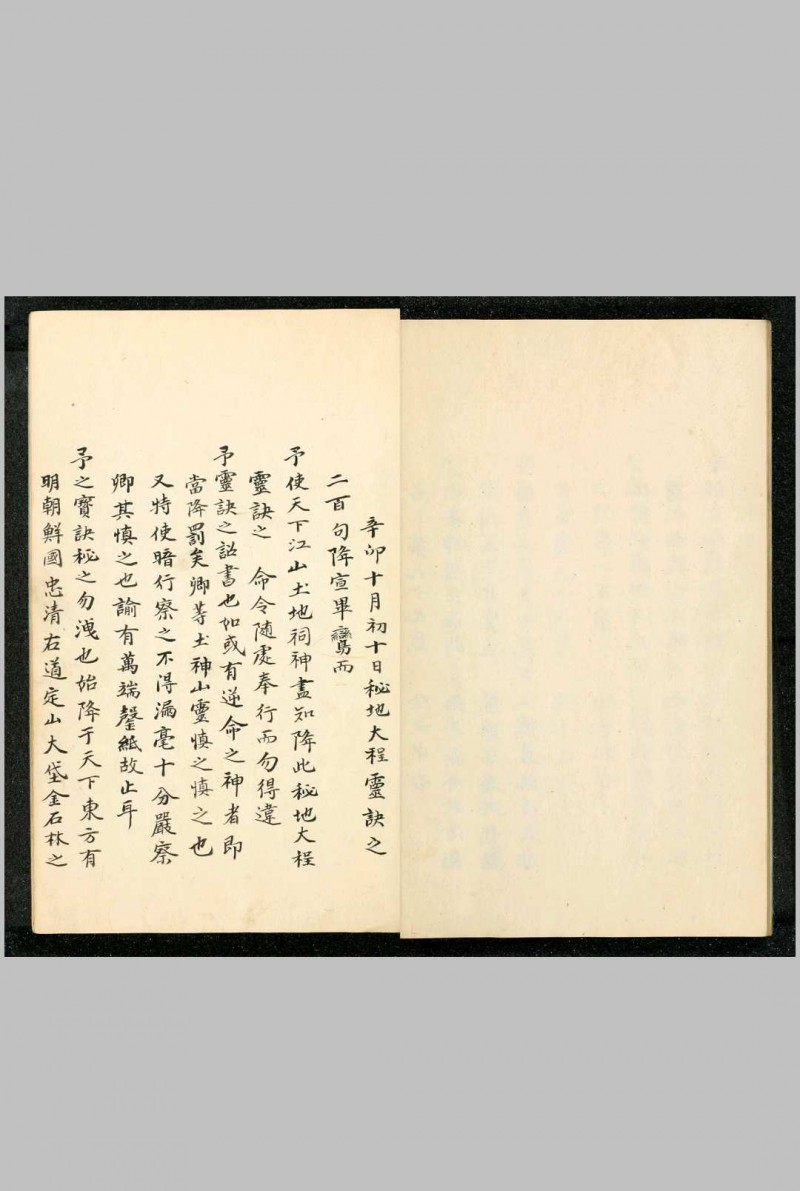 辛卯十月初十日秘地大程靈訣之
二百句降宣畢鸞而
予使天下江山土地祠神盡知降此秘地大程
靈訣之 命令随處奉行而勿得違
予靈訣之詔書也如或有逆命之神者即
當降罰矣卿等土神山靈慎之慎之也
又特使暗行察之不得漏毫十分嚴察
卿其慎之也諭有萬端罄紙故止耳
予之寶訣秘之勿洩也始降于天下東方有
明朝鮮國忠清右道定山大垈金石林之